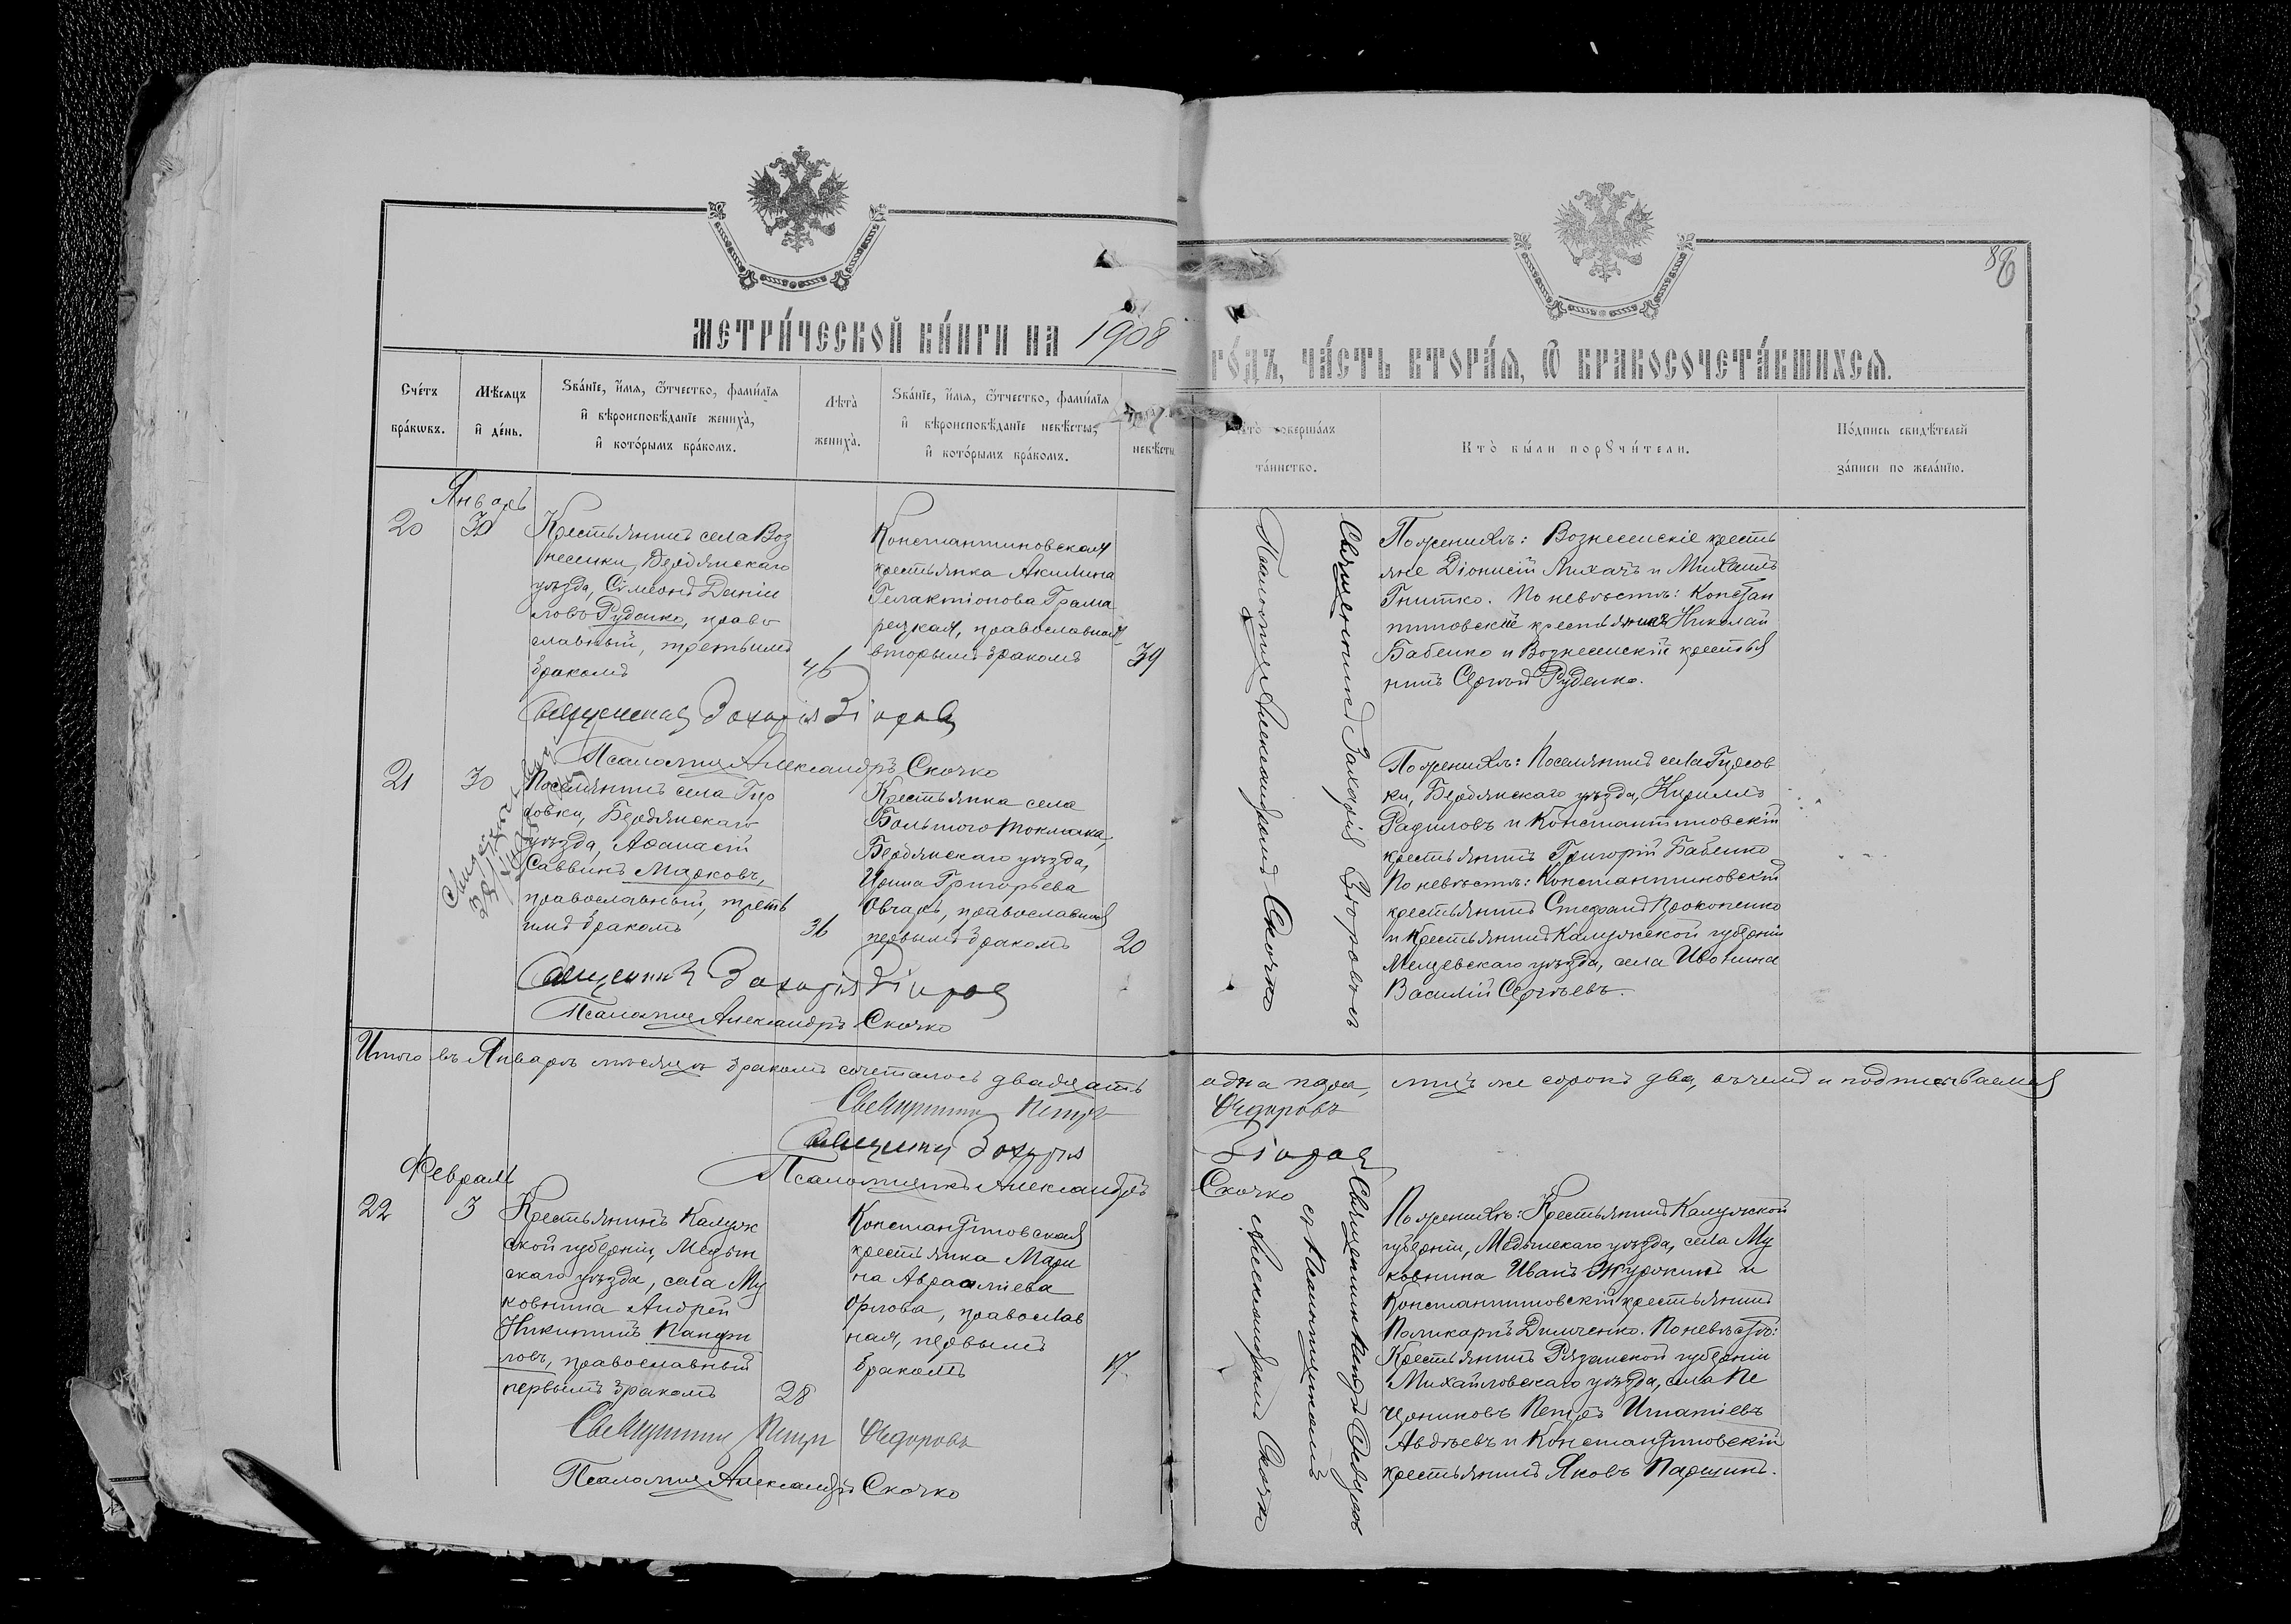 88
МЕТРИ́ЧЕСКОЙ КНИ́ГИ НА 1908
ГО́ДЪ, ЧА́СТЬ ВТОРА́Я, Ѿ БРАКОСОЧЕТА́ВШИХСЯ.
Сче́тъ бра́кѡвъ.
Мѣ́сяцъ и҆ де́нь.
Ѕва́нїе, и҆́мя, ѻ҆́тчество, фами́лїя
и҆ вѣроисповѣ́данїе жениха̀,
и҆ кото́рымъ бра́комъ.
Лѣта̀ жениха̀.
Ѕва́нїе, и҆́мя, ѻ҆́тчество, фами́лїя
и҆ вѣроисповѣ́данїе невѣ́сты,
и҆ кото́рымъ бра́комъ.
невѣ́сты
Кто̀ соверша́лъ
та́инство.
Кто̀ бы́ли порꙋчи́тели.
По́дпись свидѣ́телей
за́писи по жела́нїю.
Январь
20
30
Крестьянинъ села Воз
несенки, Бердянскаго
уѣзда, Сѵмеонъ Даніи
ловъ Руденко, право
славный, третьимъ
бракомъ
46
Константиновская
крестьянка Акилина
Галактіонова Грама
рецкая, православная,
вторымъ бракомъ
39
Священникомъ Захаріей Зіоровымъ съ
Псаломщикомъ Александромъ Скочко
По женихѣ: Вознесенскіе кресть
яне Діонисій Лихачъ и Михаилъ
Гнитко. По невѣстѣ: Констан
тиновскіе крестьянинъ Николай
Бабенко и Вознесенскій крестья
нинъ Сергѣй Руденко.
Священникъ Захарія Зіоровъ
Псаломщикъ Александръ Скочко
21
30
Поселянинъ села Гир
совки, Бердянскаго
уѣзда, Аѳанасій
Саввинъ Марковъ,
православный, треть
имъ бракомъ
36
Крестьянка села
Большого Токмака,
Бердянскаго уѣзда,
Ирина Григорьева
Овчаръ, православная
первымъ бракомъ
20
По женихѣ: Поселянинъ села Гирсов
ки, Бердянскаго уѣзда, Кириллъ
Радиловъ и Константиновскій
крестьянинъ Григорій Бабенко
По невѣстѣ: Константиновскій
крестьянинъ Стефанъ Прокопенко
и крестьянинъ Калужской губерніи
Мещевскаго уѣзда, села Ивотина
Василій Сергѣевъ.
Священникъ Захарія Зіоровъ
Псаломщикъ Александръ Скочко
Итого въ Январѣ мѣсяцѣ бракомъ сочеталось двадцать одна пара, лицъ же сорокъ два, въ чемъ и подписываемся
Священникъ Петръ Ѳедоровъ
Священникъ Захарія Зіоровъ
Псаломщикъ Александръ Скочко
Февраль
22
3
Крестьянинъ Калуж
ской губерніи, Медын
скаго уѣзда, села Му
ковнина Андрей
Никитинъ Панфи
ловъ, православный
первымъ бракомъ
28
Константиновская
крестьянка Мари
на Авраамiева
Орлова, православ
ная, первымъ
бракомъ
17
Священникъ Петръ Ѳедоровъ
съ Псаломщикомъ
Александромъ Скочко
По женихѣ: Крестьянинъ Калужской
губерніи, Медынскаго уѣзда, села Му
ковнина Иванъ Журокинъ и
Константиновскій крестьянинъ
Поликарпъ Димченко. По невѣстѣ:
Крестьянинъ Рязанской губерніи
Михайловскаго уѣзда, села Пе
чорниковъ Петръ Игнатіевъ
Авдѣевъ и Константиновскій
крестьянинъ Яковъ Паршинъ.
Священникъ Петръ Ѳедоровъ
Псаломщикъ Александръ Скочко